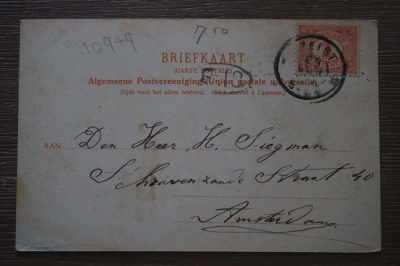 10949
7.50
BRIEFKAART
(CARTE POSTALE)
Algemeene Postvereeniging. Union postale universelle.
Zijde voor het adres bestemd. (Côté réservé à l'adresse.)
AAN Den Heer H. Siegman
Straat 40
Amsterdam